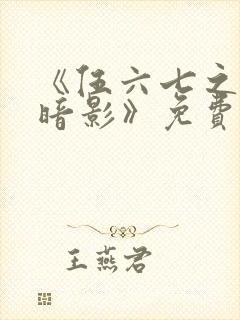 《伍六七之
暗影》免費
王燕君